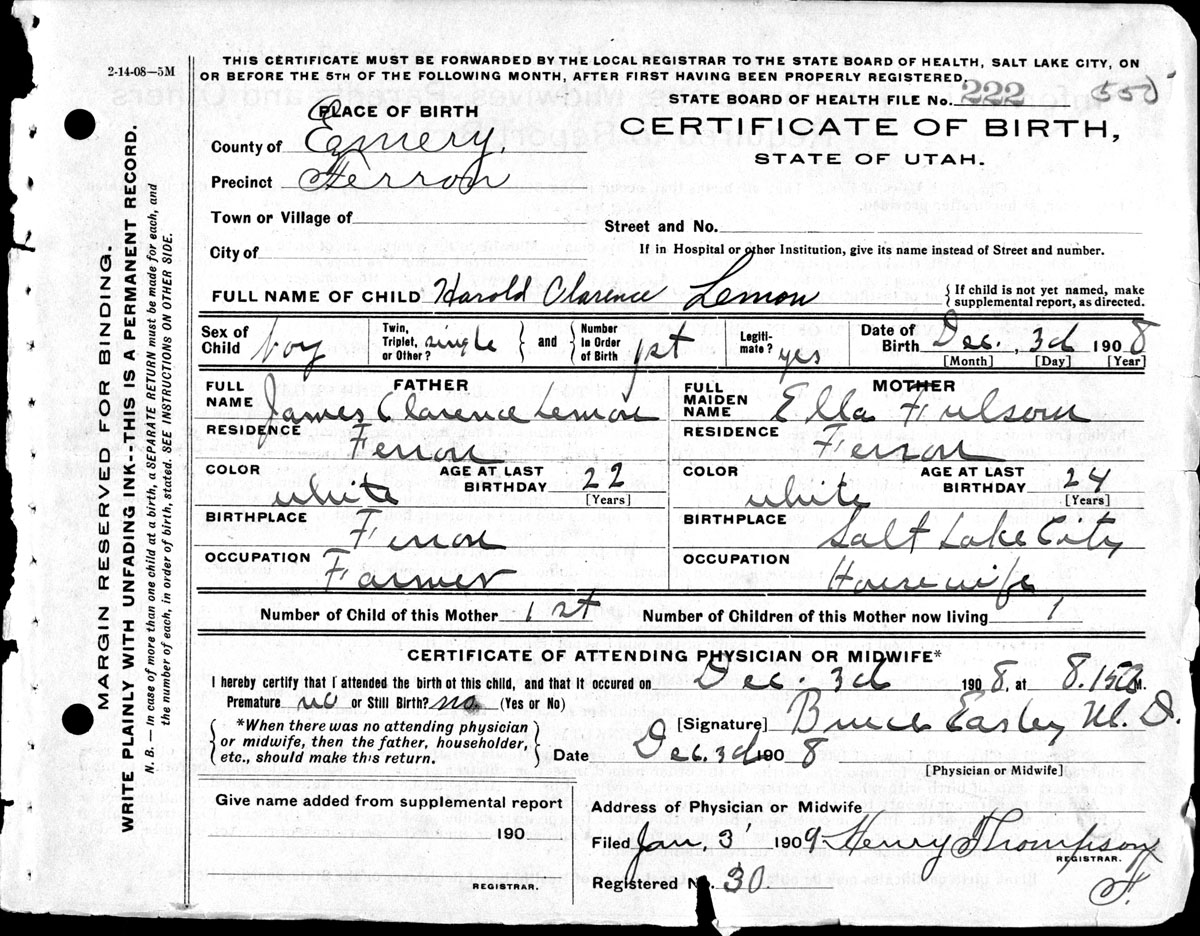 2-14-08—5M
THIS CERTIFICATE MUST BE FORWARDED BY THE LOCAL REGISTRAR TO THE STATE BOARD OF HEALTH, SALT LAKE CITY, ON
OR BEFORE THE 5TH OF THE FOLLOWING MONTH, AFTER FIRST HAVING BEEN PROPERLY REGISTERED.
STATE BOARD OF HEALTH FILE No. 222 550
CERTIFICATE OF BIRTH,
STATE OF UTAH.
PLACE OF BIRTH
County of Emery.
Precinct Ferron
Town or Village of
Street and No.
City of
If in Hospital or other Institution, give its name instead of Street and number.
FULL NAME OF CHILD Harold Clarence Lemon
{If child is not yet named, make
supplemental report, as directed.
Sex of Child boy
Twin, Triplet, or Other? single } and { Number in Order of Birth 1st
Legiti-mate? yes
Date of Birth Dec. , 3d 1908
[Month] [Day] [Year]
FATHER
FULL NAME James Clarence Lemon
RESIDENCE Ferron
COLOR white
AGE AT LAST BIRTHDAY 22 [Years]
BIRTHPLACE Ferron
OCCUPATION Farmer
MOTHER
FULL MAIDEN NAME Ella Fulsom
RESIDENCE Ferron
COLOR white
AGE AT LAST BIRTHDAY 24 [Years]
BIRTHPLACE Salt Lake City
OCCUPATION Housewife
Number of Child of this Mother 1st Number of Children of this Mother now living 1
CERTIFICATE OF ATTENDING PHYSICIAN OR MIDWIFE*
I hereby certify that I attended the birth of this child, and that it occured on Dec. 3d 1908, at 8.15 M.
Premature no or Still Birth? no. (Yes or No)
{*When there was no attending physician
or midwife, then the father, householder,
etc., should make this return.}
[Signature] Bruce Easley M. D.
Date Dec. 3d 1908
[Physician or Midwife]
Give name added from supplemental report
190
REGISTRAR.
Address of Physician or Midwife
Filed Jan, 3' 1909 Henry Thompson
REGISTRAR.
Registered No. 30.
MARGIN RESERVED FOR BINDING.
WRITE PLAINLY WITH UNFADING INK--THIS IS A PERMANENT RECORD.
N. B. — In case of more than one child at a birth, a SEPARATE RETURN must be made for each, and
the number of each, in order of birth, stated. SEE INSTRUCTIONS ON OTHER SIDE.